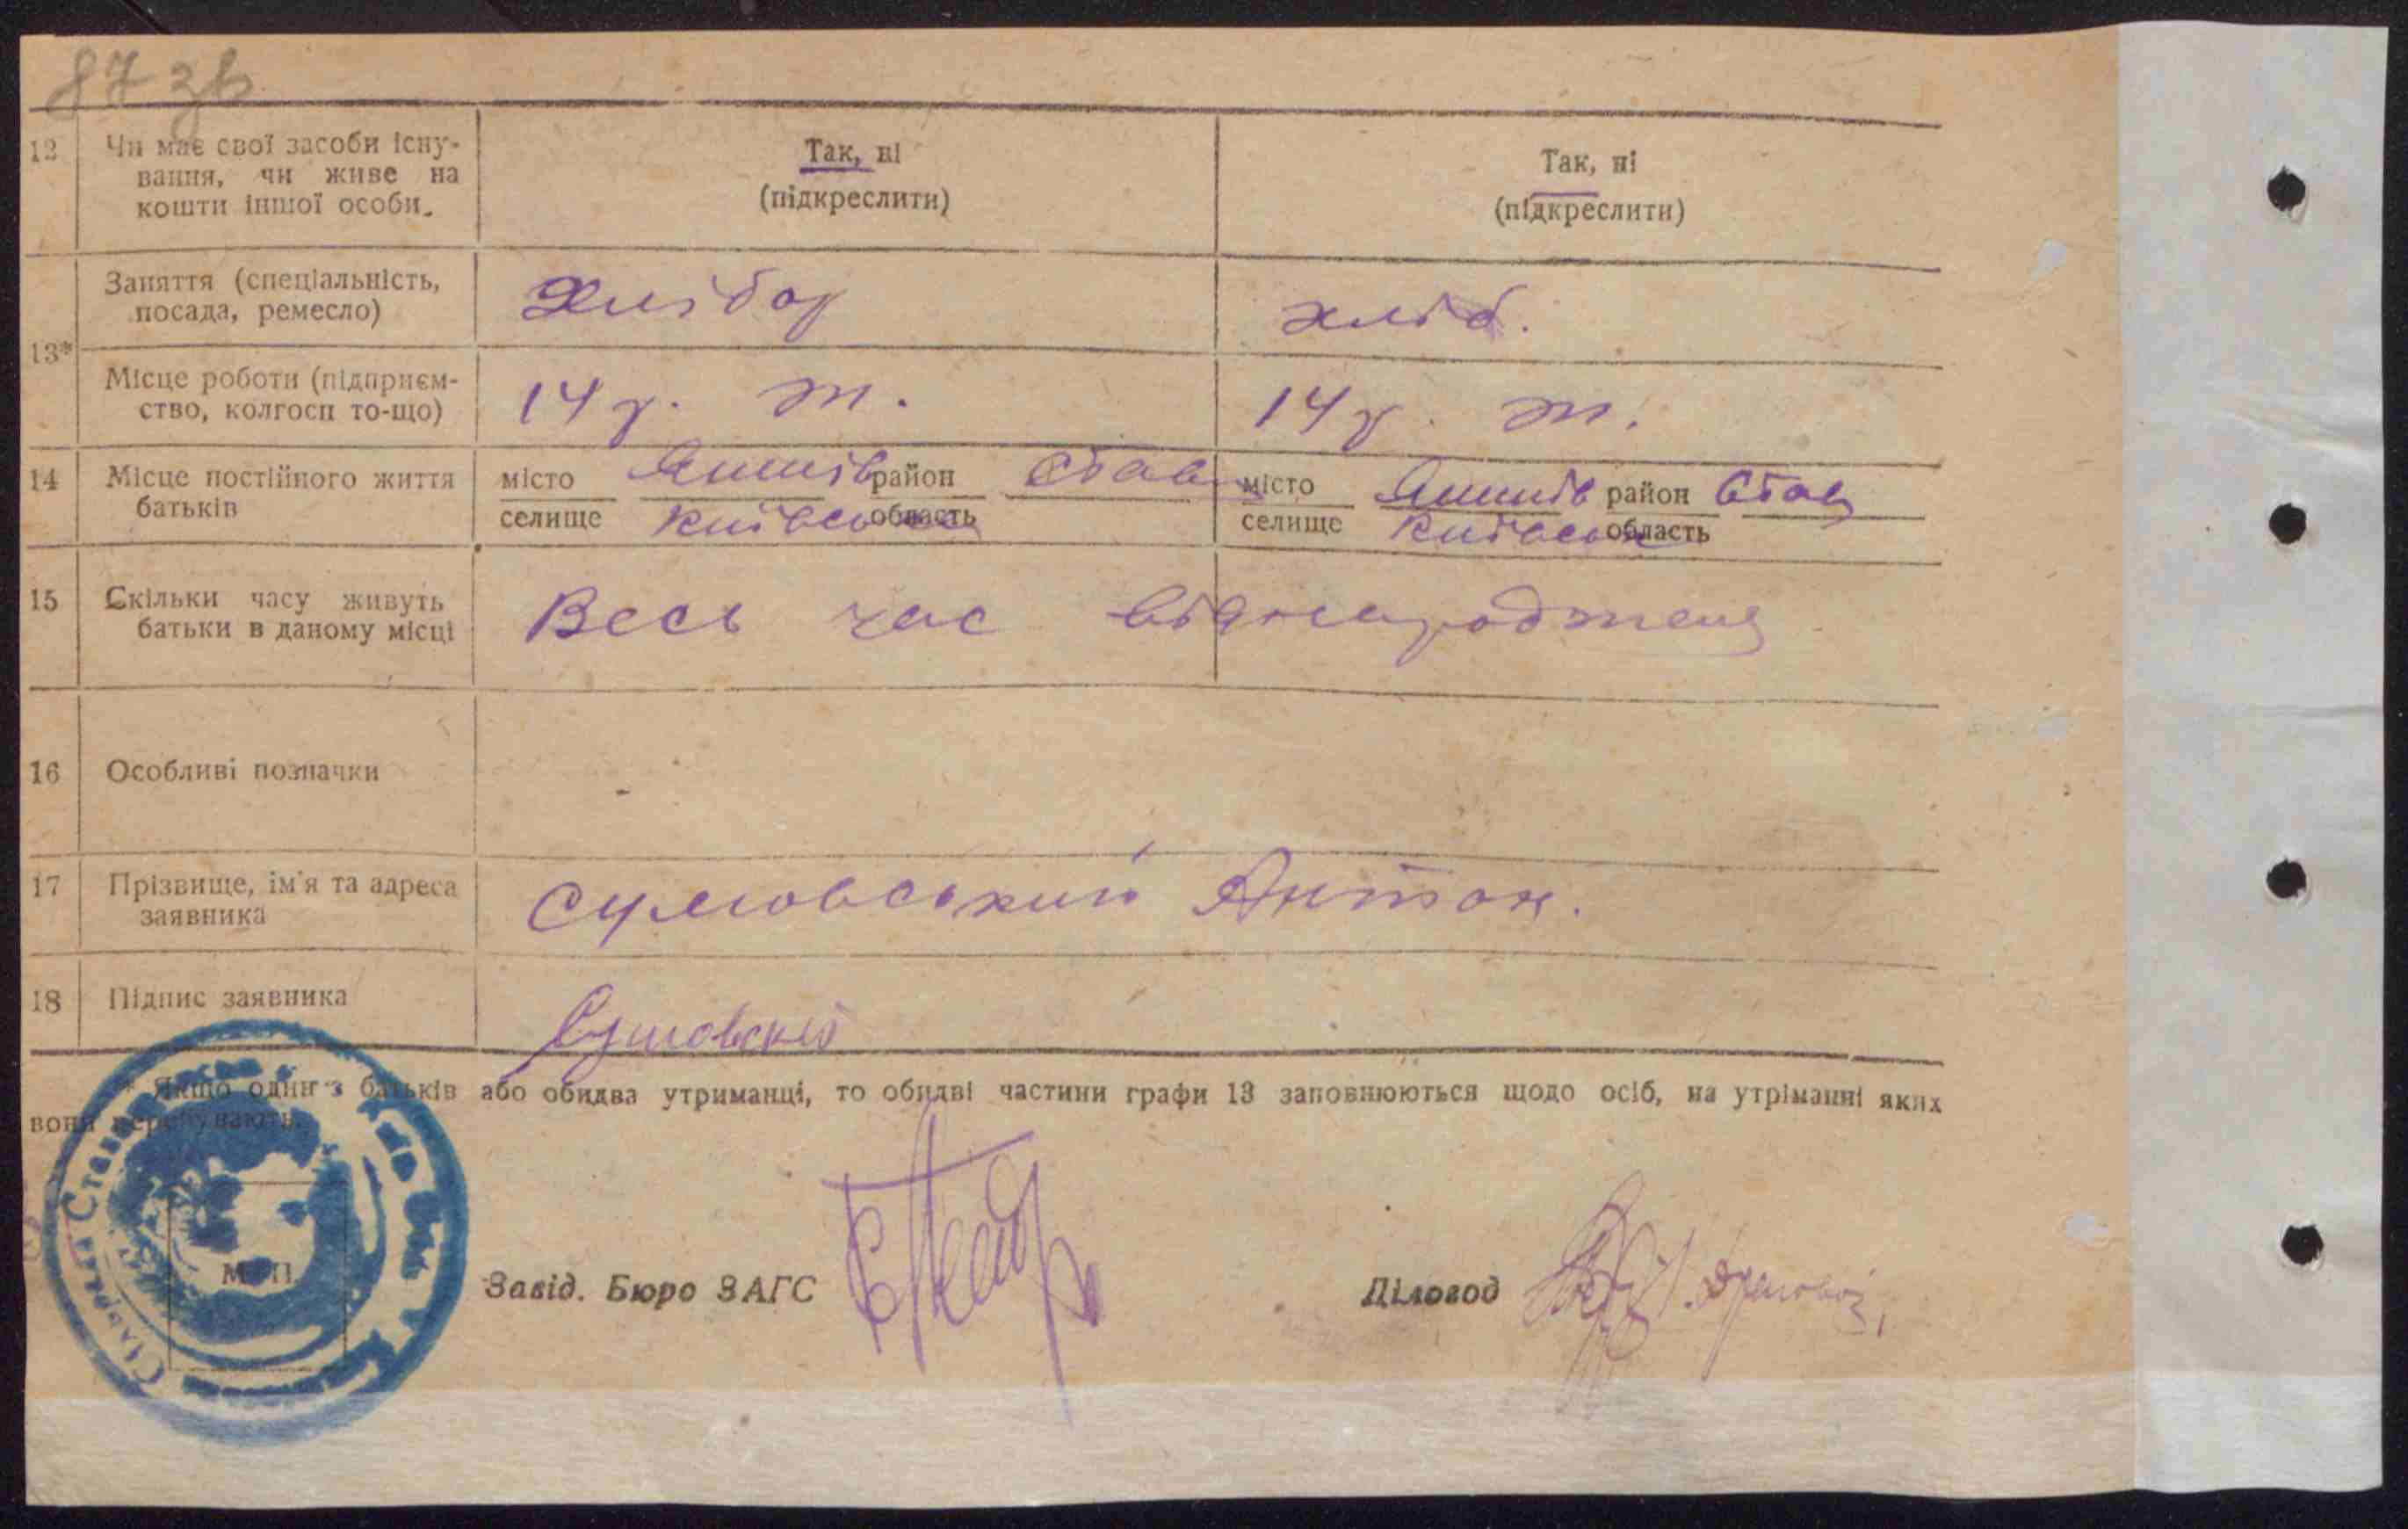 87 зв
12 Чи має свої засоби існу-
вання, чи живе на
кошти іншої особи.
Так, ні
(підкреслити)
Так, ні
(підкреслити)
13*
Заняття (спеціальність,
посада, ремесло)
Хлібор
хліб.
Місце роботи (підприєм-
ство, колгосп то-що)
14 р. т.
14 р. т.
14 Місце постійного життя
батьків
місто район Став
селище Київська область
місто район Став
селище Київськ область
15 Скільки часу живуть
батьки в даному місці
Весь час
16 Особливі позначки
17 Прізвище, ім'я та адреса
заявника
Сумовський Антон.
18 Підпис заявника
Сумовский
* Якщо один з батьків або обидва утриманці, то обидві частини графи 13 заповнюються щодо осіб, на утріманні яких
вони перебувають.
М. П.
Завід. Бюро ЗАГС
Діловод